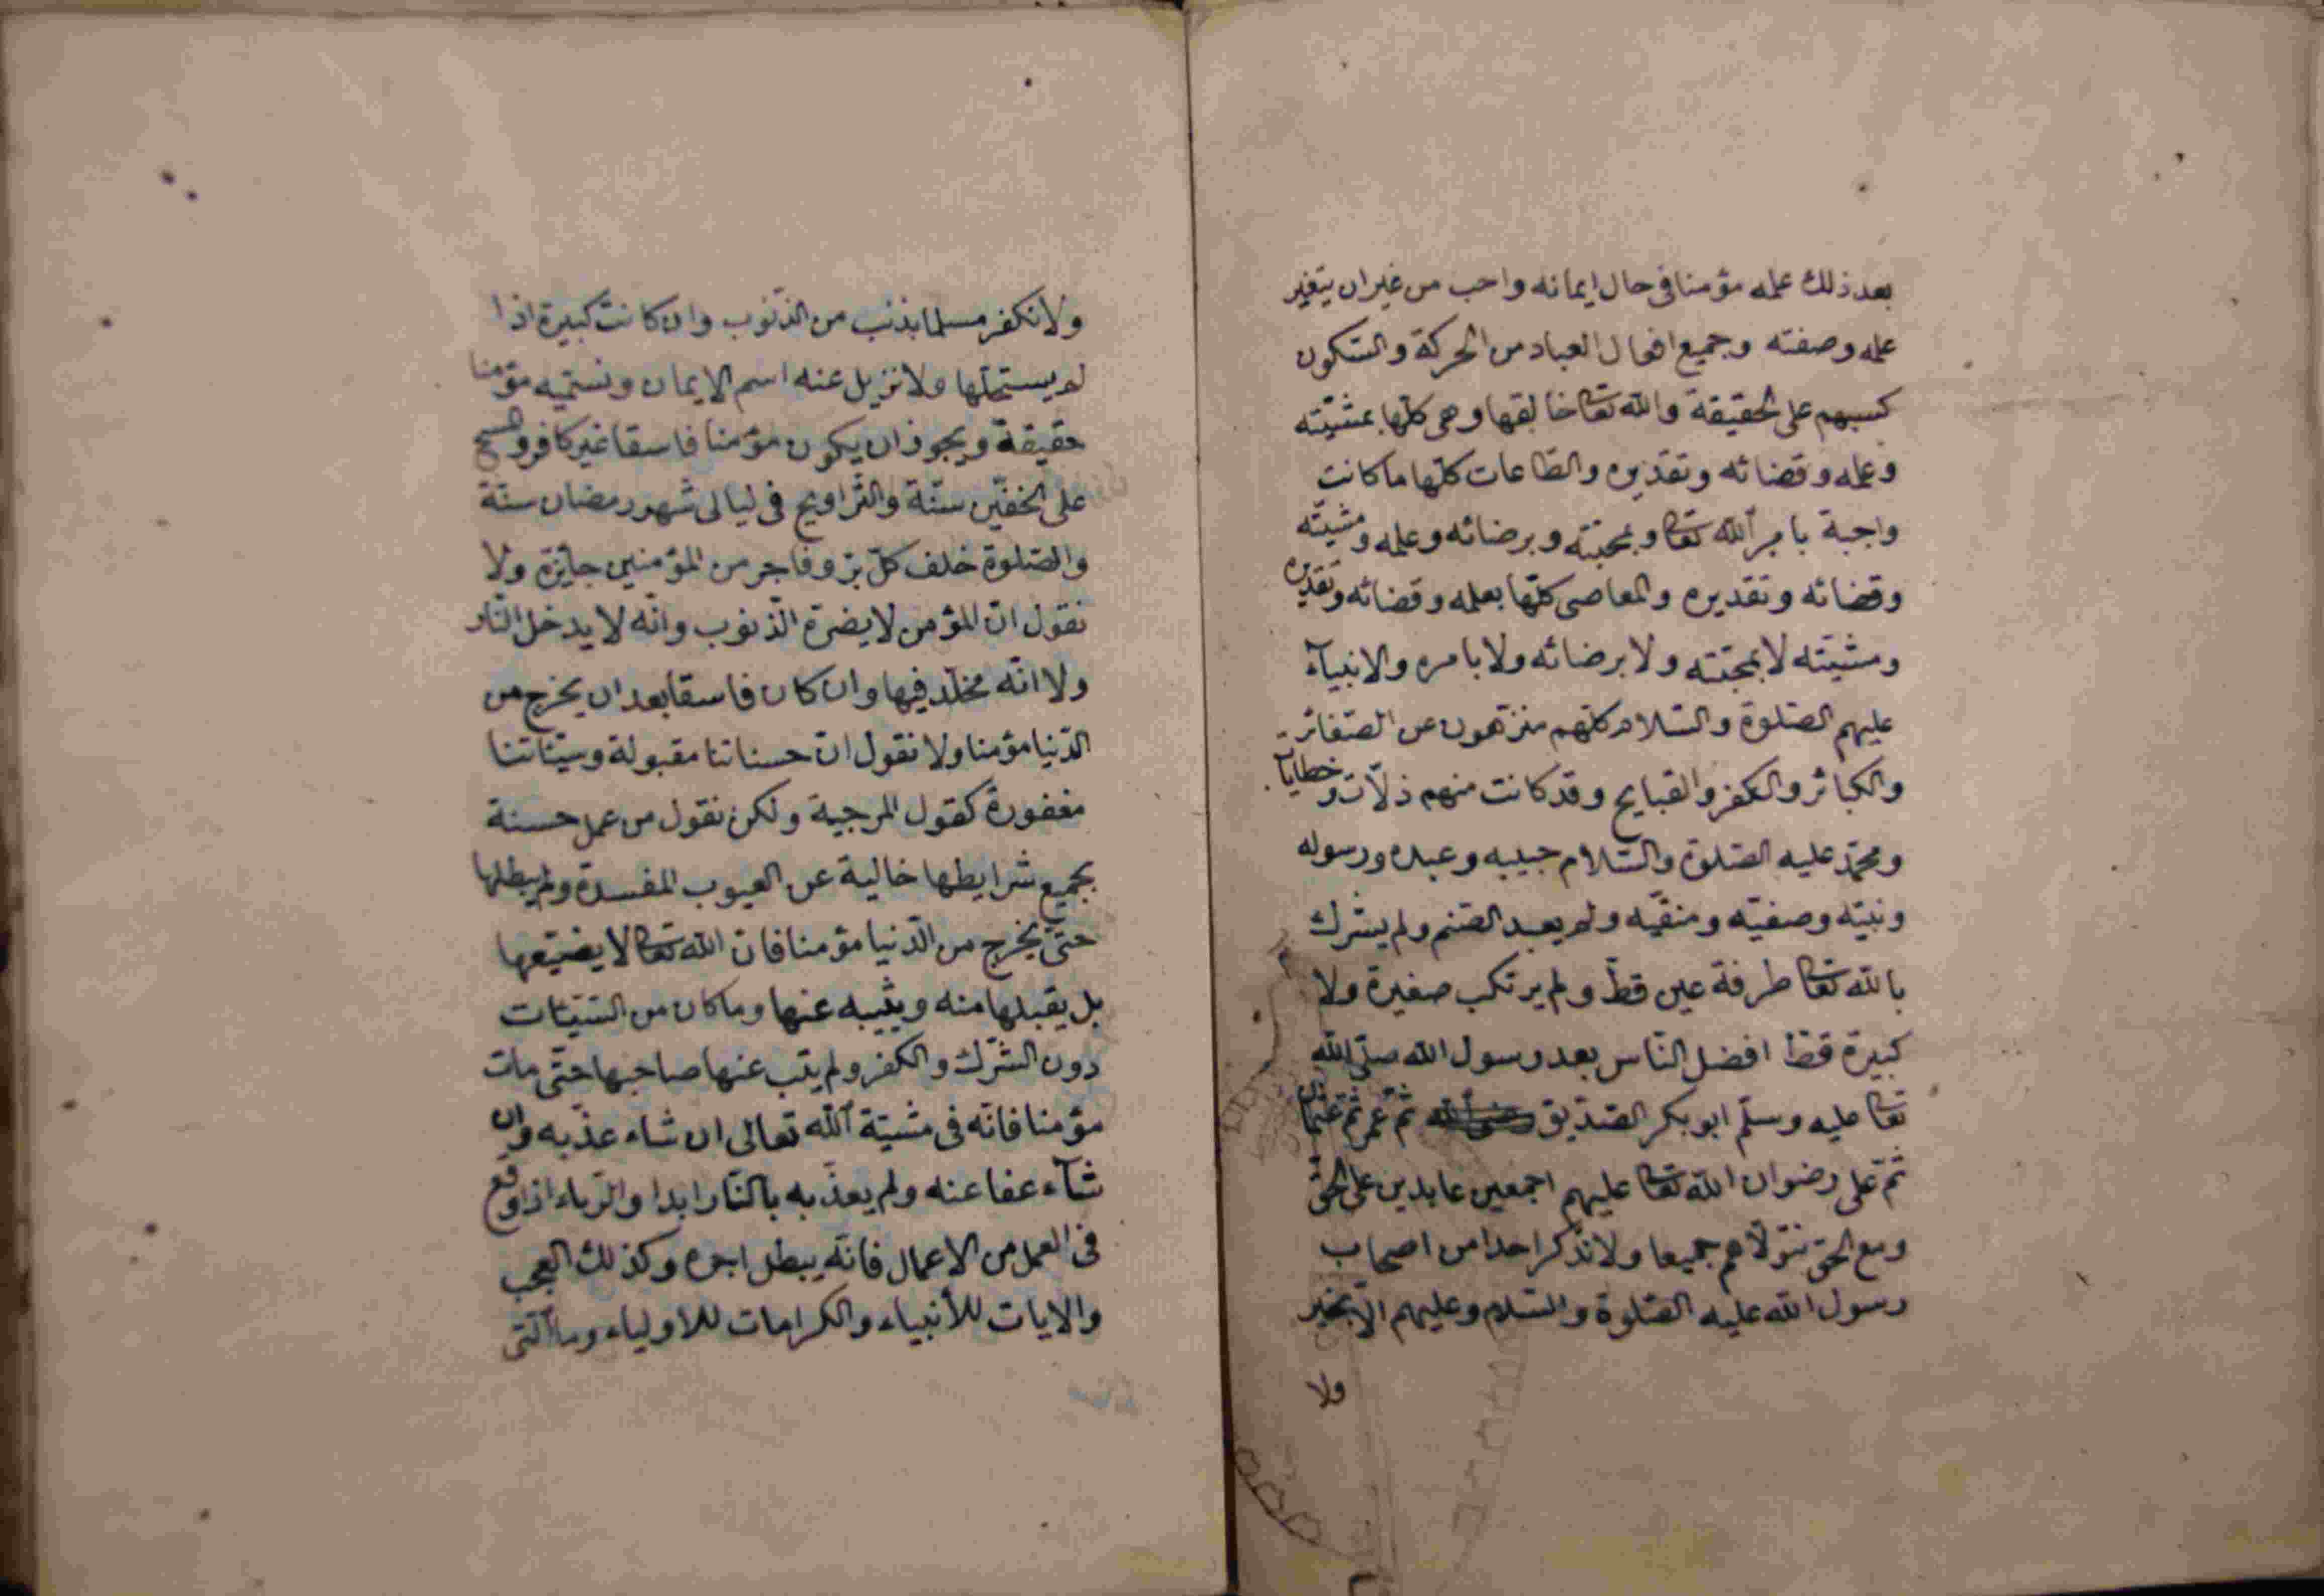 بعد ذلك علمه مؤمنا فى حال ايمانه واحب من غير ان يتغير
علمه وصفته وجميع افعال العباد من الحركة والسّكون
كسبهم على الحقيقة والله تعا خالقها وهى كلّها بمشيّته
وعلمه وقضائه وتقديره والطّاعات كلّها ما كانت
واجبة بامر الله تعا وبمحبّته وبرضائه وعلمه ومشيّته
وقضائه وتقديره والمعاصى كلّها بعلمه وقضائه وتقديره
ومشيّته لا بمحبّته ولا برضائه ولا بامره والانبيآء
عليهم الصّلوة والسّلام كلّهم منزّهون عن الصّغائر
والكبائر والكفر والقبايح وقد كانت منهم ذلّات وخطايآ
ومحمّد عليه الصّلوة والسّلام حبيبه وعبده ورسوله
ونبيّه وصفيّه ومنقيّه ولم يعبد الصّنم ولم يشرك
بالله تعا طرفة عين قطّ ولم يرتكب صغيرة ولا
كبيرة قطّ افضل النّاس بعد رسول الله صلّى الله
تعا عليه وسلّم ابو بكر الصّدّيق ثمّ عمر ثمّ عثمان
ثمّ على رضوان الله تعا عليهم اجمعين عابدين على الحقّ
ومع الحقّ نتولّاهم جميعا ولا نذكر احدا من اصحاب
رسول الله عليه الصّلوة والسّلام وعليهم الّا بخير
ولا
ولا نكفر مسلما بذنب من الذّنوب وان كانت كبيرة اذا
لم يستحلّها ولا نزيل عنه اسم الايمان ونسمّيه مؤمنا
حقيقة ويجوز ان يكون مؤمنا فاسقا غير كافر والمسح
على الخفّين سنّة والتّراويح فى ليالى شهر رمضان سنّة
والصّلوة خلف كلّ برّ وفاجر من المؤمنين جايزة ولا
نقول انّ المؤمن لا يضرّه الذّنوب وانّه لا يدخل النّار
ولا انّه مخلّد فيها وان كان فاسقا بعد ان يخرج من
الدّنيا مؤمنا ولا نقول انّ حسناتنا مقبولة وسيّئاتنا
مغفورة كقول المرجية ولكن نقول من عمل حسنة
بجميع شرايطها خالية عن العيوب المفسدة ولم يبطلها
حتّى يخرج من الدّنيا مؤمنا فانّ الله تعا لا يضيّعها
بل يقبلها منه ويثيبه عنها وما كان من السّيّئات
دون الشّرك والكفر ولم يتب عنها صاحبها حتّى مات
مؤمنا فانّه فى مشيّة الله تعالى ان شاء عذّبه وان
شآء عفا عنه ولم يعذّبه بالنّار ابدا والرّياء اذا وقع
فى العمل من الاعمال فانّه يبطل اجره وكذلك العجب
والايات للأنبياء والكرامات للاولياء وما الّتى